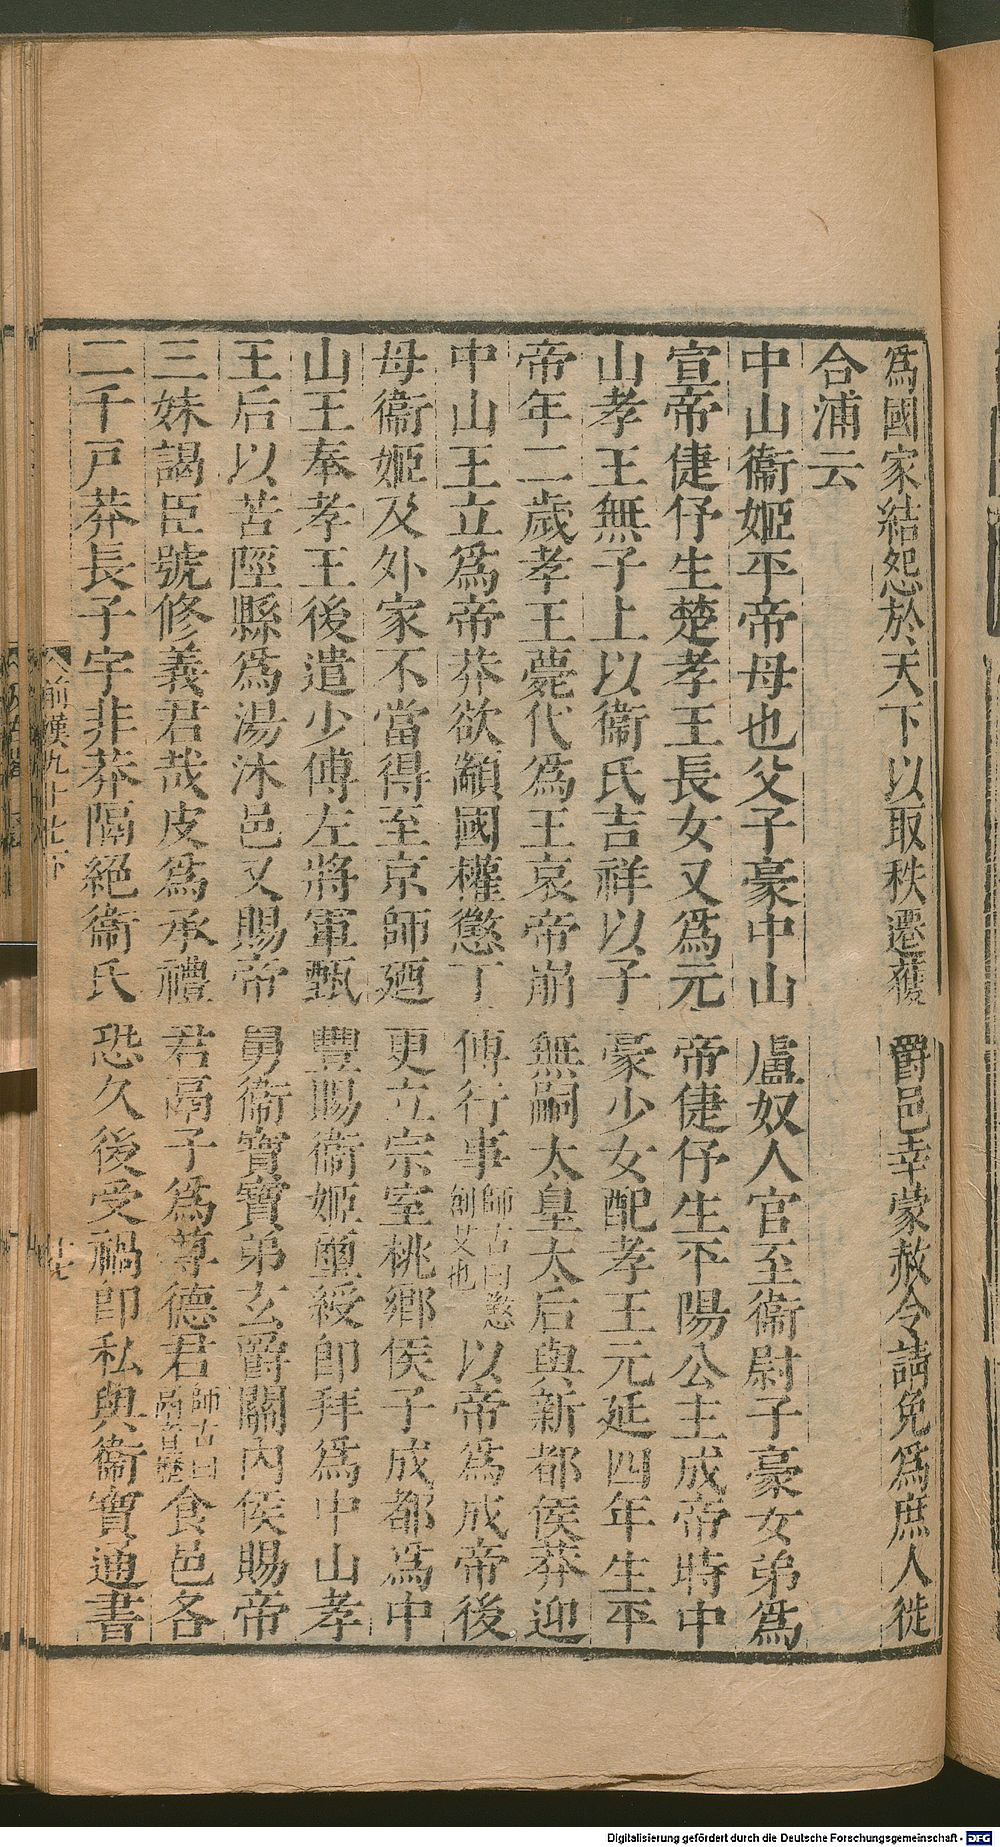 爲國家結怨於天下以取秩遷獲爵邑幸蒙赦令請免爲庶人徙
合浦云
中山衞姬平帝母也父子豪中山盧奴人官至衞尉子豪女弟爲
宣帝倢伃生楚孝王長女又爲元帝倢伃生平陽公主成帝時中
山孝王無子上以衞氏吉祥以子豪少女配孝王元延四年生平
帝年二歲孝王薨代爲王哀帝崩無嗣太皇太后與新都侯莽迎
中山王立爲帝莽欲顓國權懲丁傅行事師古曰懲創艾也以帝爲成帝後
母衞姬及外家不當得至京師廼更立宗室桃鄉侯子成都爲中
山王奉孝王後遣少傅左將軍甄豐賜衞姬璽綬即拜爲中山孝
王后以苦陘縣爲湯沐邑又賜帝舅衞寶寶弟玄爵關內侯賜帝
三妹謁臣號修義君哉皮爲承禮君鬲子爲尊德君師古曰鬲音歷食邑各
二千戸莽長子宇非莽隔絕衞氏恐久後受禍即私與衞寶通書
前漢九十七下
廿七
Digitalisierung gefördert durch die Deutsche Forschungsgemeinschaft - DFG